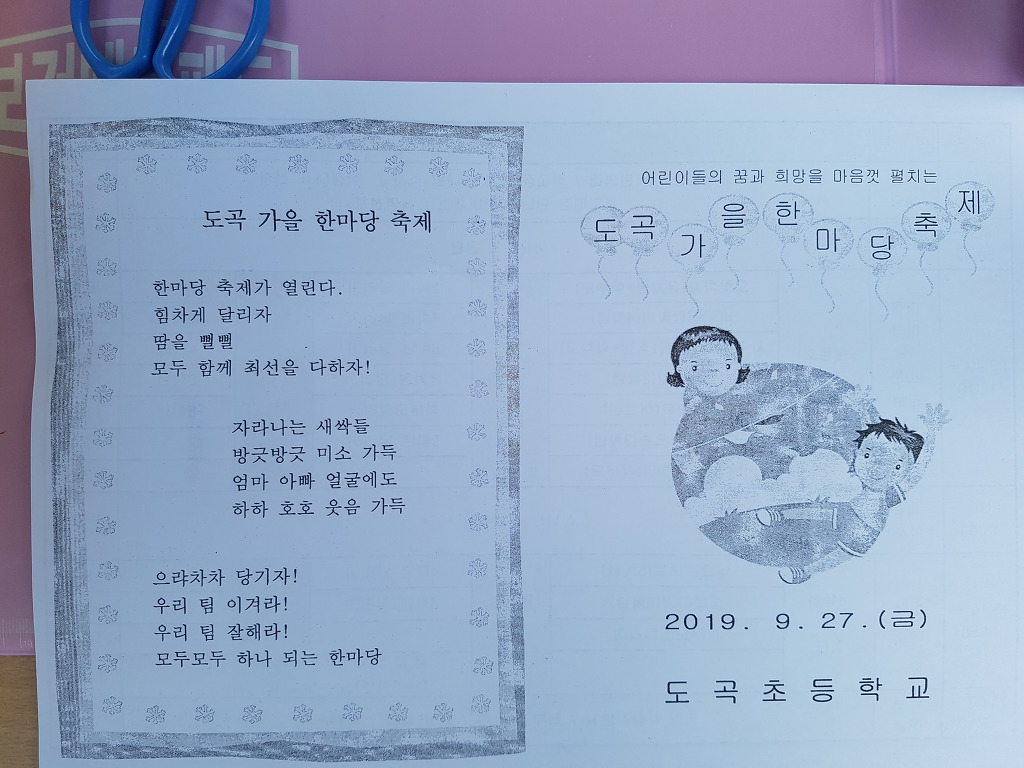 도곡 가을 한마당 축제
한마당 축제가 열린다.
힘차게 달리자
땀을 뻘뻘
모두 함께 최선을 다하자!
자라나는 새싹들
방긋방긋 미소 가득
엄마 아빠 얼굴에도
하하 호호 웃음 가득
으랴차차 당기자!
우리 팀 이겨라!
우리 팀 잘해라!
모두모두 하나 되는 한마당
어린이들의 꿈과 희망을 마음껏 펼치는
도곡가을한마당축제
2019. 9. 27.(금)
도곡초등학교